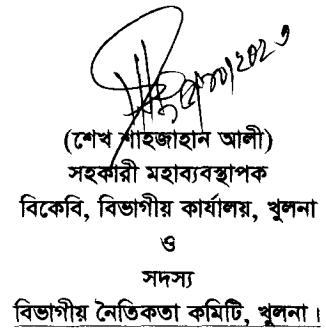 (শেখ শাহজাহান আলী)
সহকারী মহাব্যবস্থাপক
বিকেবি, বিভাগীয় কার্যালয়, খুলনা
ও
সদস্য
বিভাগীয় নৈতিকতা কমিটি, খুলনা।